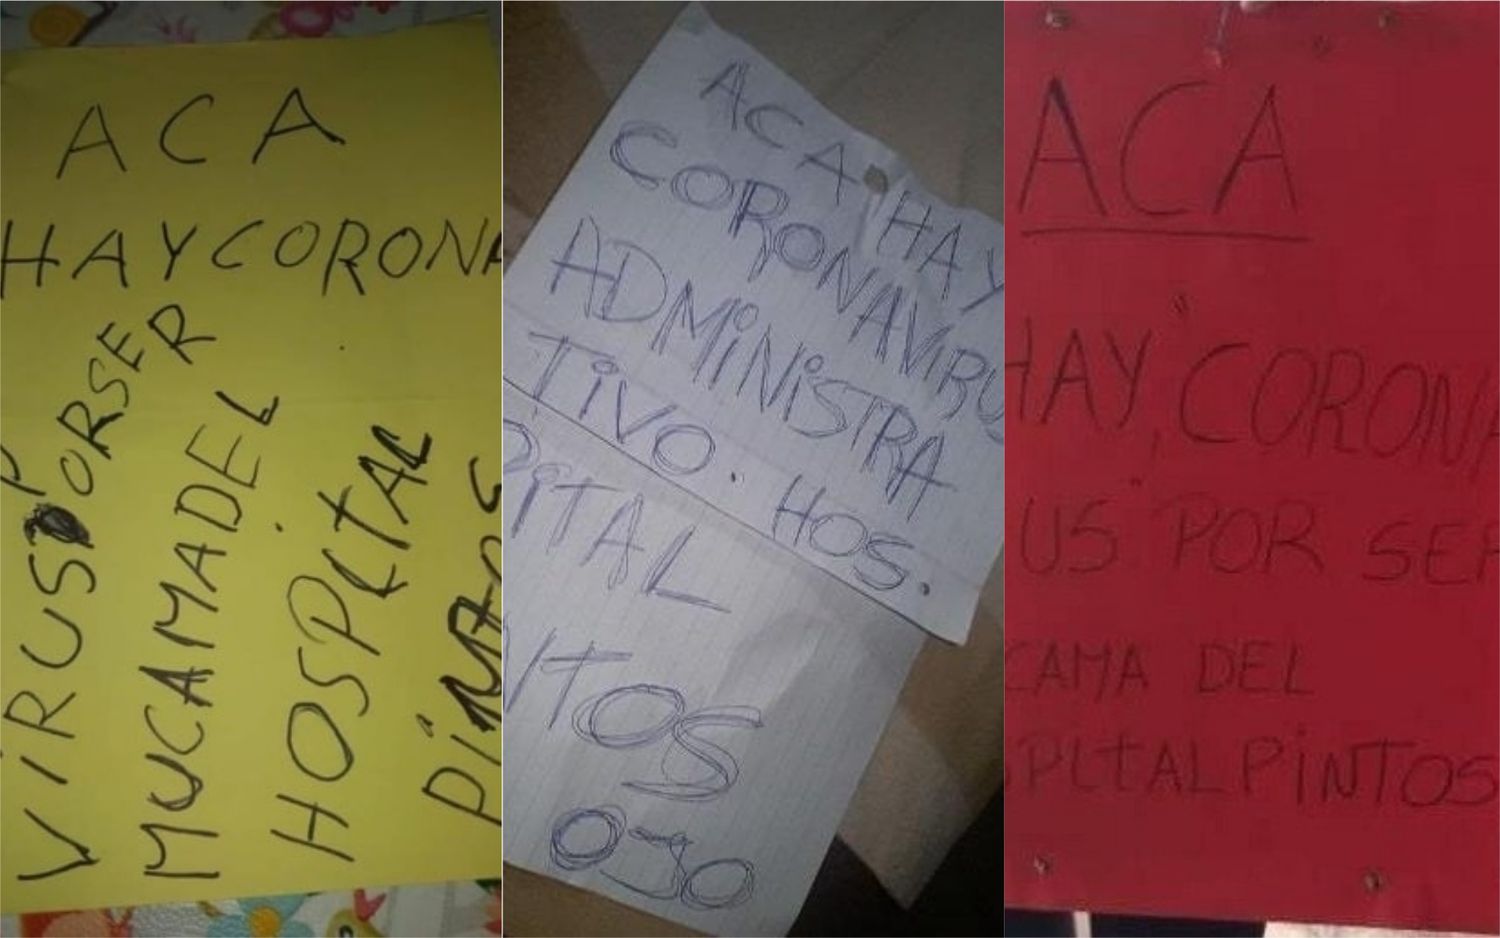 ACA
HAY CORONA
VIRUS PORSER
MUCAMA DEL
HOSPLTAL
PINTOS
ACA HAY
CORONAVIRU
ADMiNiSTRA
TiVO. HOS.
PiTAL
NTOS
OJO
ACA
HAY, "CORONA
US" POR SER
CAMA DEL
SPLtAL PiNTOS